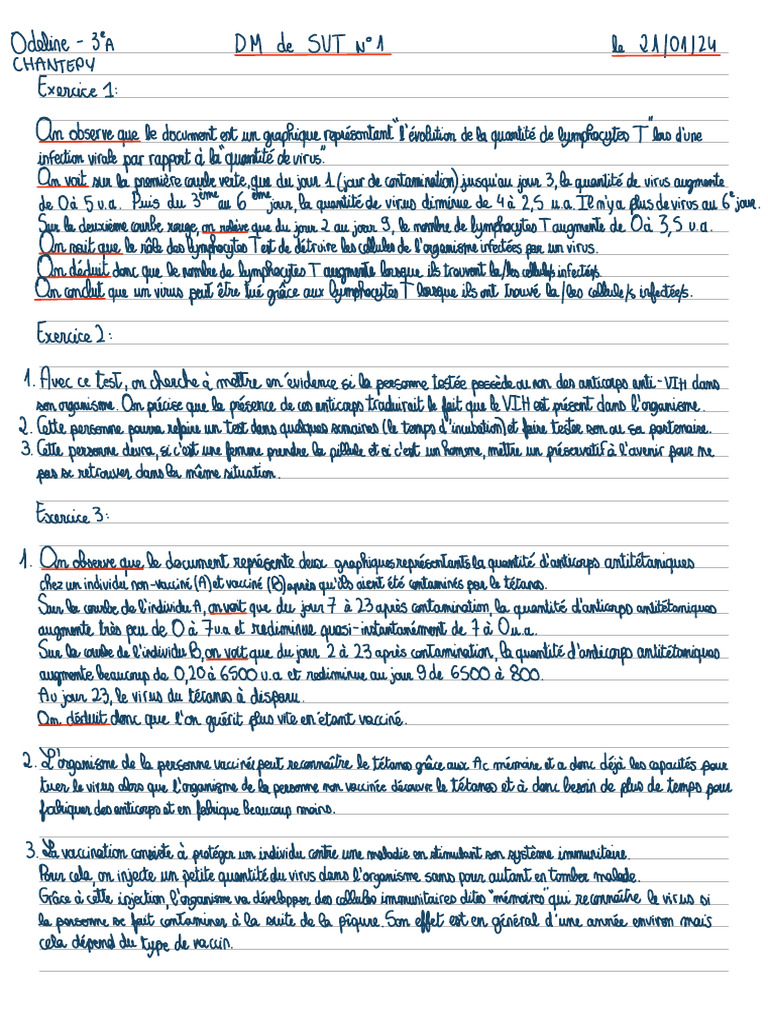 Odeline - 3eA
DM de SVT N°1
le 21/01/24
CHANTEPY
Exercice 1:
On observe que le document est un graphique représentant "l'évolution de la quantité de lymphocytes T" lors d'une
infection virale par rapport à la "quantité de virus".
On voit sur la première courbe verte, que du jour 1 (jour de contamination) jusqu'au jour 3, la quantité de virus augmente
de 0 à 5 u.a. Puis du 3ème au 6ème jour, la quantité de virus diminue de 4 à 2,5 u.a. Il n'y a plus de virus au 6e jour.
Sur la deuxième courbe rouge, on relève que du jour 2 au jour 9, le nombre de lymphocytes T augmente de 0 à 3,5 u.a.
On sait que le rôle des lymphocytes T est de détruire les cellules de l'organisme infectées par un virus.
On déduit donc que le nombre de lymphocytes T augmente lorsque ils trouvent la/les cellule/s infectée/s.
On conclut que un virus peut être tué grâce aux lymphocytes T lorsque ils ont trouvé la/les cellule/s infectée/s.
Exercice 2:
1. Avec ce test, on cherche à mettre en évidence si la personne testée possède ou non des anticorps anti-VIH dans
son organisme. On précise que la présence de ces anticorps traduirait le fait que le VIH est présent dans l'organisme.
2. Cette personne pourra refaire un test dans quelques semaines (le temps d'incubation) et faire tester son ou sa partenaire.
3. Cette personne devra, si c'est une femme prendre la pillule et si c'est un homme, mettre un préservatif à l'avenir pour ne
pas se retrouver dans la même situation.
Exercice 3:
1. On observe que le document représente deux graphiques représentants la quantité d'anticorps antitétaniques
chez un individu non-vacciné (A) et vacciné (B) après qu'ils aient été contaminés par le tétanos.
Sur la courbe de l'individu A, on voit que du jour 7 à 23 après contamination, la quantité d'anticorps antitétaniques
augmente très peu de 0 à 7 u.a et rediminue quasi-instantanément de 7 à 0 u.a.
Sur la courbe de l'individu B, on voit que du jour 2 à 23 après contamination, la quantité d'anticorps antitétaniques
augmente beaucoup de 0,20 à 6500 u.a et rediminue au jour 9 de 6500 à 800.
Au jour 23, le virus du tétanos à disparu.
On déduit donc que l'on guérit plus vite en étant vacciné.
2. L'organisme de la personne vaccinée peut reconnaître le tétanos grâce aux Ac mémoire et a donc déjà les capacités pour
tuer le virus alors que l'organisme de la personne non vaccinée découvre le tétanos et à donc besoin de plus de temps pour
fabriquer des anticorps et en fabrique beaucoup moins.
3. La vaccination consiste à protéger un individu contre une maladie en stimulant son système immunitaire.
Pour cela, on injecte un petite quantité du virus dans l'organisme sans pour autant en tomber malade.
Grâce à cette injection, l'organisme va développer des cellules immunitaires dites "mémoires" qui reconnaître le virus si
la personne se fait contaminer à la suite de la piqure. Son effet est en général d'une année environ mais
cela dépend du type de vaccin.